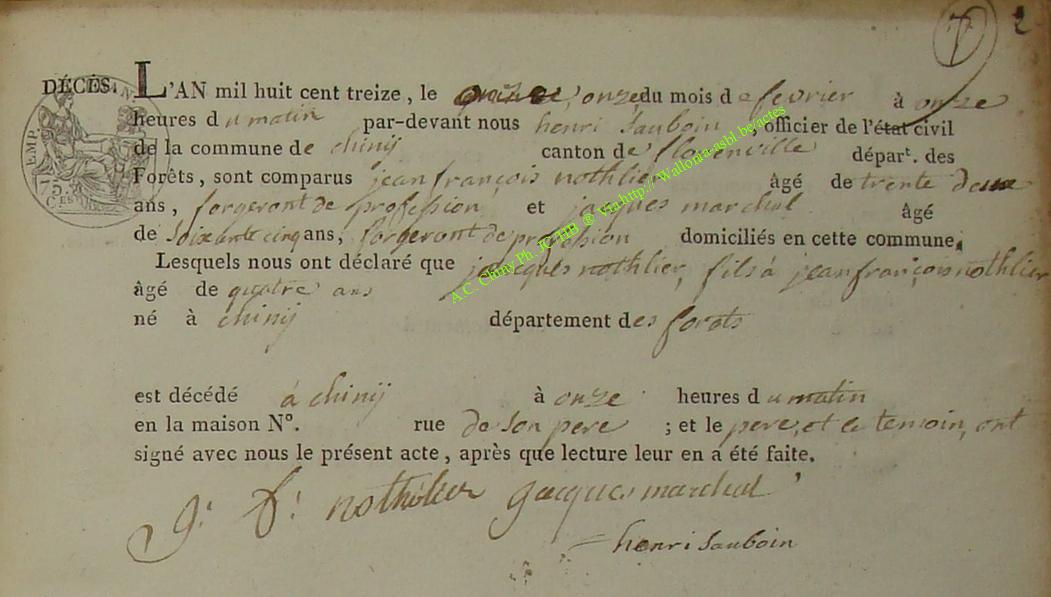 2
DÉCÈS. L'AN mil huit cent treize, le onze du mois de fevrier à onze
heures du matin par-devant nous henri Sauboin, officier de l'état civil
de la commune de chinij canton de florenville dépar^t. des
Forêts, sont comparus jean françois nothlier âgé de trente deux
ans, forgeront de profession et jacques marchal âgé
de Soixante cinq ans, forgeront de profession domiciliés en cette commune.
Lesquels nous ont déclaré que jacques nothlier, fils à jean françois nothlier
âgé de quatre ans
né à chinij département des forets
est décédé à chinij à onze heures du matin
en la maison N°. rue de son pere ; et le pere, et le temoin, ont
signé avec nous le présent acte, après que lecture leur en a été faite.
nothlier Jacques marchal
henri Sauboin
TIMB
75
C^ES
A.C. Chiny Ph. JCHHB @ Via http://Wallonia-asbl.be/actes